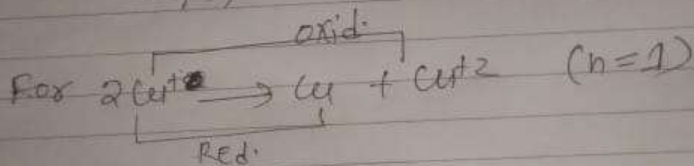 oxid.
For 2Cu⁺ → Cu + Cu⁺² (n=1)
Red.